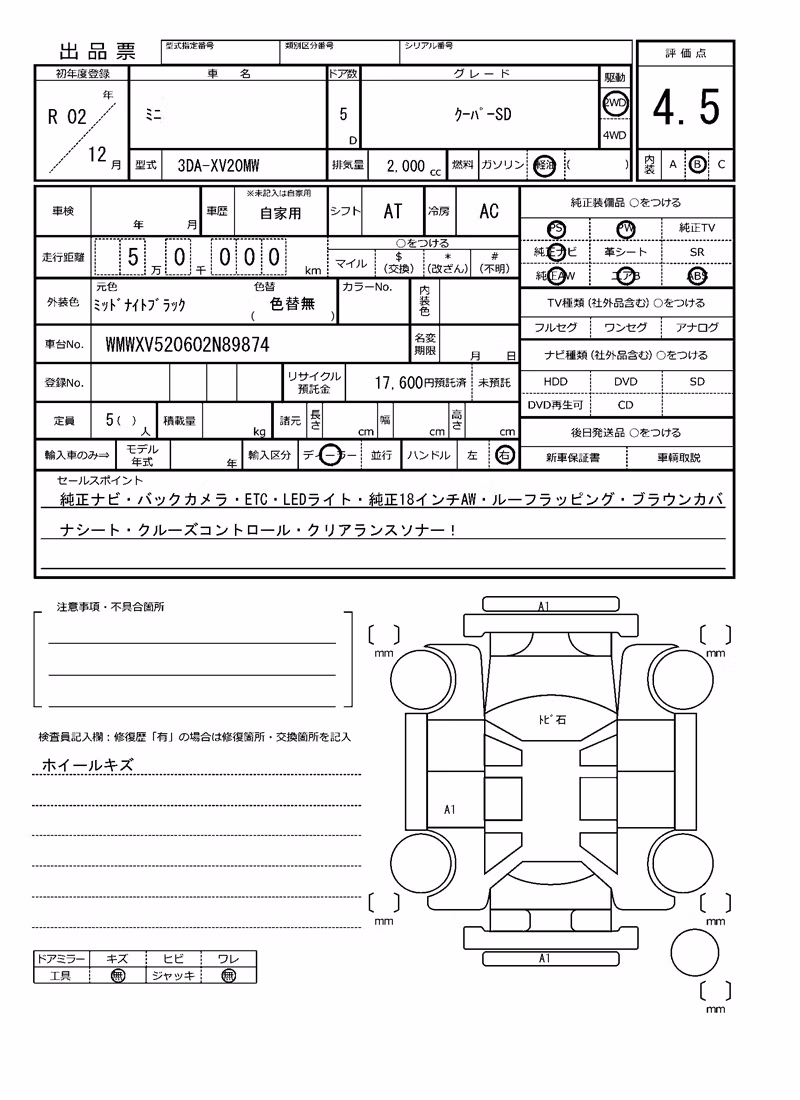 出品票 型式指定番号 類別区分番号 シリアル番号
評価点
4.5
内装 A B C
初年度登録 車名 ドア数 グレード 駆動
R 02 年 12 月
ミニ
5 D
クーパーSD
2WD
4WD
型式 3DA-XV20MW 排気量 2,000 cc 燃料 ガソリン 軽油 ( )
車検 年 月 車歴 ※未記入は自家用 自家用 シフト AT 冷房 AC
走行距離 5 万 0 千 0 0 0 km
○をつける
マイル $ (交換) * (改ざん) # (不明)
外装色 元色 ミッドナイトブラック 色替 ( 色替無 ) カラーNo. 内装色
車台No. WMWXV520602N89874 名変期限 月 日
登録No. リサイクル預託金 17,600円預託済 未預託
定員 5( ) 人 積載量 kg 諸元 長さ cm 幅 cm 高さ cm
輸入車のみ⇒ モデル年式 年 輸入区分 ディーラー 並行 ハンドル 左 右
純正装備品 ○をつける
PS PW 純正TV
純正ナビ 革シート SR
純正AW エアB ABS
TV種類 (社外品含む) ○をつける
フルセグ ワンセグ アナログ
ナビ種類 (社外品含む) ○をつける
HDD DVD SD
DVD再生可 CD
後日発送品 ○をつける
新車保証書 車輌取説
セールスポイント
純正ナビ・バックカメラ・ETC・LEDライト・純正18インチAW・ルーフラッピング・ブラウンカバ
ナシート・クルーズコントロール・クリアランスソナー!
注意事項・不具合箇所
検査員記入欄:修復歴「有」の場合は修復箇所・交換箇所を記入
ホイールキズ
ドアミラー キズ ヒビ ワレ
工具 無 ジャッキ 無
A1
mm mm
トビ石
A1
mm mm
A1
mm